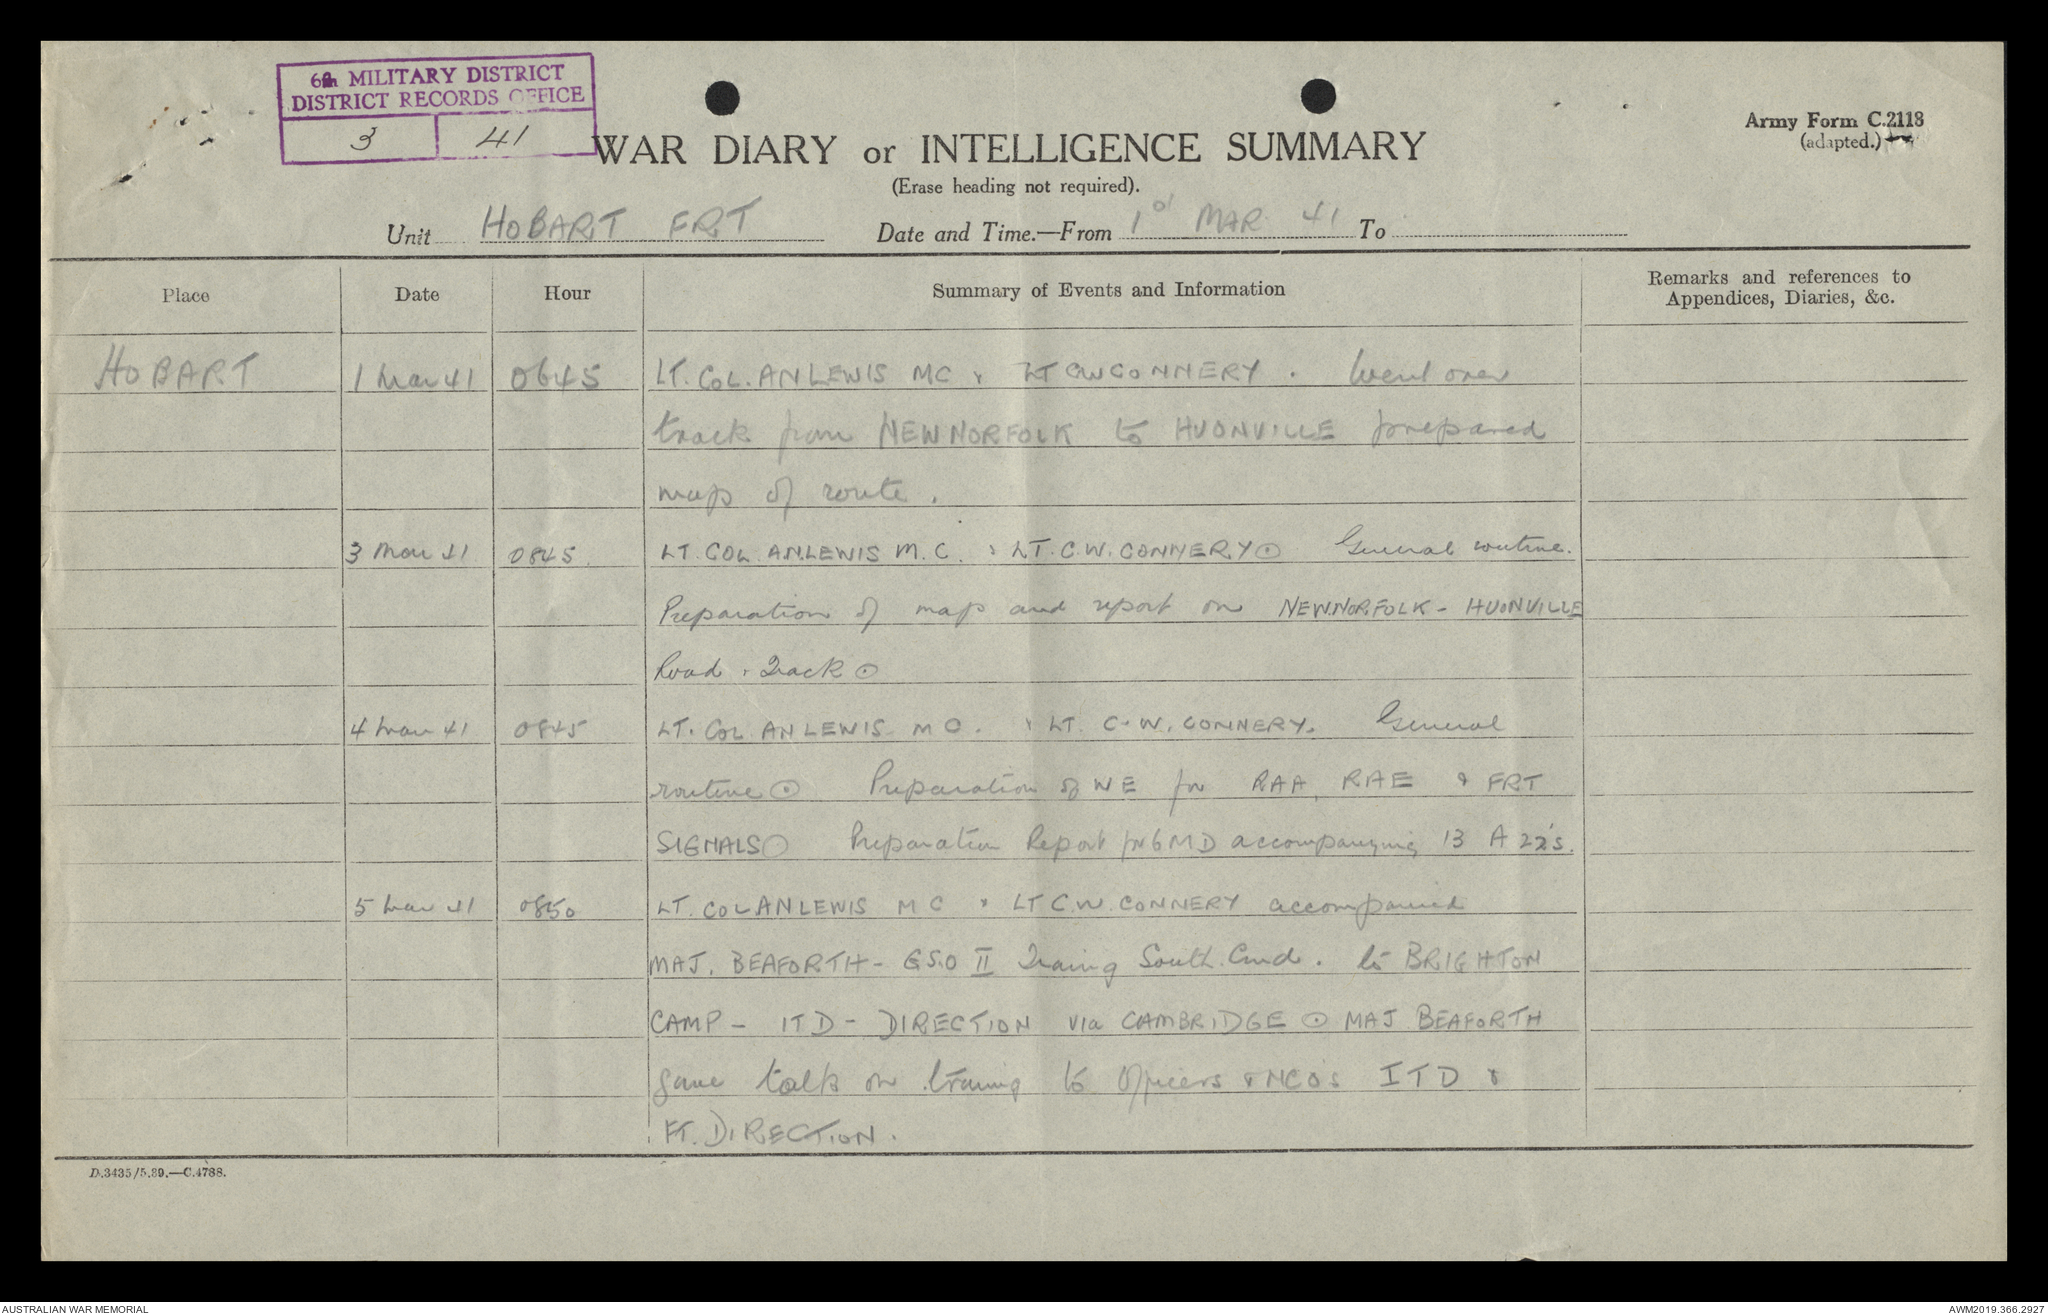 6th MILITARY DISTRICT
DISTRICT RECORDS OFFICE
3 41
Army Form C.2118
(adapted.)
WAR DIARY or INTELLIGENCE SUMMARY
(Erase heading not required).
Unit HOBART FRT Date and Time.—From 1st MAR 41 To
Place Date Hour Summary of Events and Information Remarks and references to Appendices, Diaries, &c.
HOBART 1 Mar 41 0645 LT. COL. A N LEWIS MC & LT C W CONNERY. Went over
track from NEW NORFOLK to HUONVILLE prepared
map of route.
3 Mar 41 0845 LT. COL. A.N. LEWIS M.C. & LT. C.W. CONNERY⊙ General routine.
Preparation of map and report on NEW NORFOLK - HUONVILLE
Road & Track⊙
4 Mar 41 0845 LT. COL AN LEWIS MC. & LT. C.W. CONNERY. General
routine⊙ Preparation of WE for RAA, RAE & FRT
SIGNALS⊙ Preparation Report for 6MD accompanying 13 A 22's.
5 Mar 41 0850 LT. COL AN LEWIS MC & LT C.W. CONNERY accompanied
MAJ. BEAFORTH - GSO II Traing South. Cmd. to BRIGHTON
CAMP - ITD - DIRECTION via CAMBRIDGE ⊙ MAJ BEAFORTH
gave talk on traing to Officers & NCOs ITD &
FT. DIRECTION.
D.3435/5.39.—C.4788.
AUSTRALIAN WAR MEMORIAL
AWM2019.366.2927